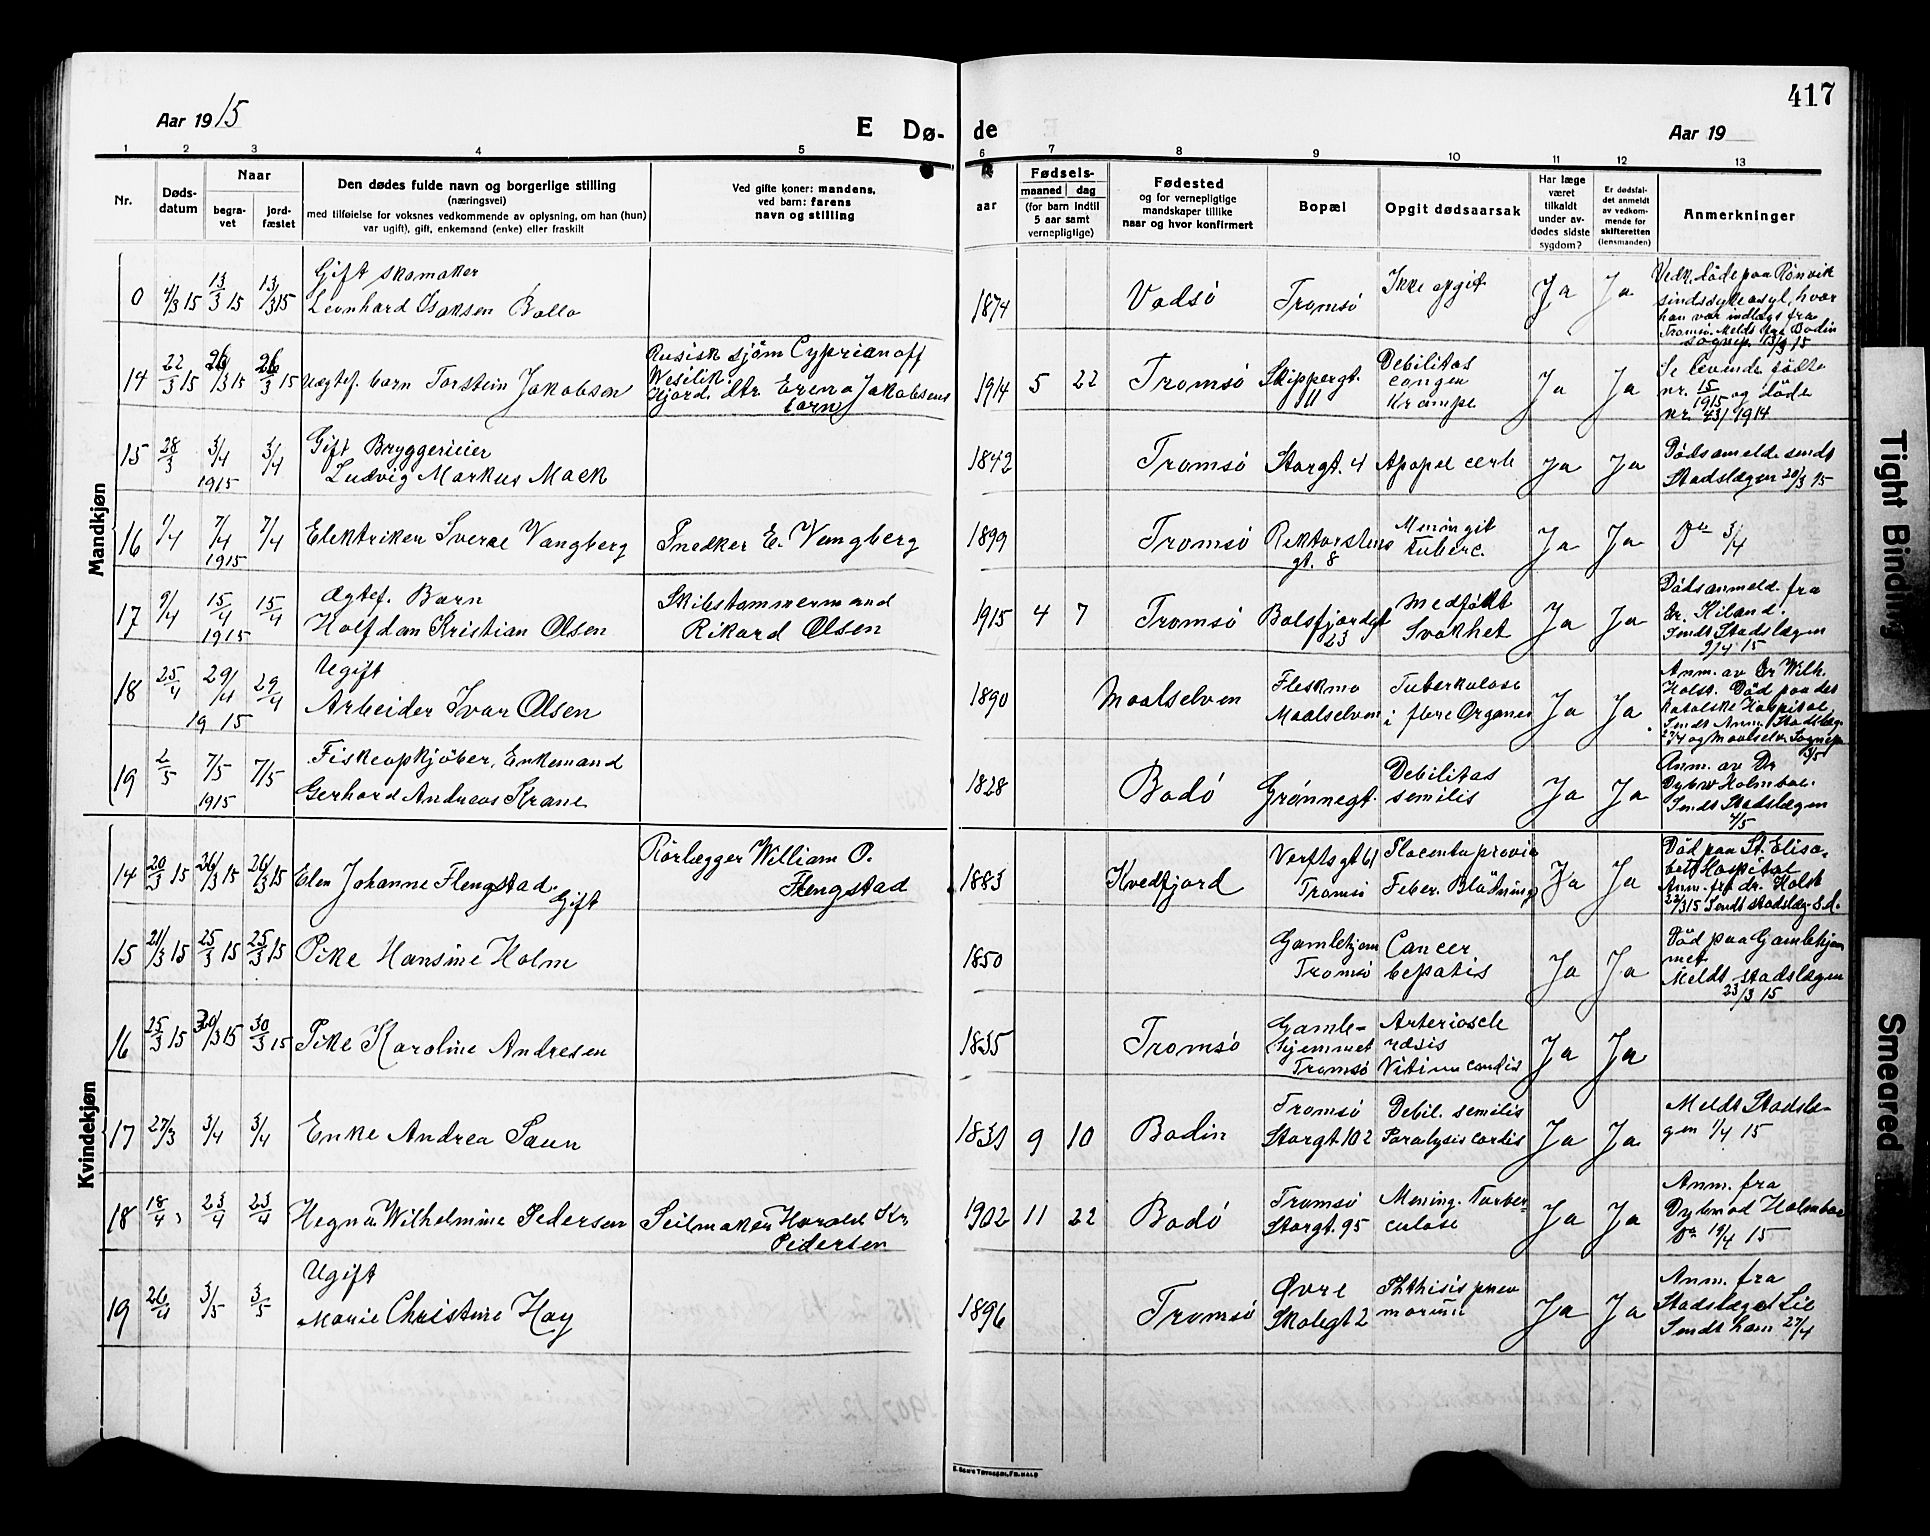 417
Aar 1915
E Dø-
de
Aar 19
1 2 3 4 5 6 7 8 9 10 11 12 13
Nr.
Døds-
datum
Naar
begra-
vet
jord-
fæstet
Den dødes fulde navn og borgerlige stilling
(næringsvei)
med tilføielse for voksnes vedkommende av oplysning, om han (hun)
var ugift), gift, enkemand (enke) eller fraskilt
Ved gifte koner: mandens,
ved barn: farens
navn og stilling
aar
Fødsels-
maaned dag
(for barn indtil
5 aar samt
vernepligtige)
Fødested
og for vernepligtige
mandskaper tillike
naar og hvor konfirmert
Bopæl
Opgit dødsaarsak
Har læge
været
tilkaldt
under av-
dødes sidste
sygdom?
Er dødsfal-
det anmeldt
av vedkom-
mende for
skifteretten
(lensmanden)
Anmerkninger
Mandkjøn
0 4/3 15 13/3 15 13/3 15
Gift skomaker
Leonhard Isaksen Bollo
1874 Vadsø Tromsø Ikke opgit Ja Ja
Vedk. døde paa Rønvik
sindssykeasyl, hvor
han var indlagt fra
Tromsø. Meldt fra Bodin
sognep. 13/3 15
14 22/3 15 26/3 15 26/3 15 Uegtef. barn Torstein Jakobsen
Rusisk sjøm Cyprianoff
Wesilik.
Gjord. dtr. Erena Jakobsens
barn
1914 5 22 Tromsø Skippergt. 11
Debilitas
congen
Krampe
Ja Ja
Se levende fødte
nr. 15
1915 og døde
nr. 43/1914
15 28/3 3/4 1915 3/4
Gift Bryggerieier
Ludvig Markus Mack
1842 Tromsø Storgt. 4 Apopel cerb Ja Ja
Dødsameld. sendt
Stadslægen 20/3 15
16 1/4 7/4 1915 7/4 Elektriker Sverre Vangberg
Snedker E. Vangberg
1899 Tromsø Rektorstens
gt. 8
Meningit
Tuberc.
Ja Ja Do 3/4
17 9/4 15/4 1915 15/4
Ægtef. Barn
Halfdan Kristian Olsen
Skibstømmermand
Rikard Olsen
1915 4 7 Tromsø Balsfjordgt
23
Medfødt
Svakhet
Ja Ja
Dødsanmeld. fra
Dr. Kiland.
Sendt Stadslægen
9/4 15
18 25/4 29/4 1915 29/4
Ugift
Arbeider Ivar Olsen
1890 Maalselven
Fleskmo
Maalselven
Tuberkulose
i flere Organer
Ja Ja
Anm. av Dr Wilh.
Holst. Død paa det
katolske Hospital.
Sendt Anm. Stadslæg.
27/4 og Maalselv. Sognep
3/5
19 2/5 7/5 1915 7/5
Fiskeopkjøber, Enkemand
Gerhard Andreas Krane
1828 Bodø Grønnegt.
Debilitas
semilis
Ja Ja
Anm. av Dr
Dybw Holmboe.
Sendt Stadslægen
4/5
Kvindekjøn
14 20/3 15 26/3 15 26/3 15
Elen Johanne Flengstad.
Gift
Rørlægger William O.
Flengstad
1883 Kvedfjord
Verftsgt 61
Tromsø
Placenta prævia
Feber. Blødning
Ja Ja
Død paa St. Elisa-
bet Hospital
Anm. fra dr. Holst
22/3 15 Sendt stadslæg. s.d.
15 21/3 15 25/3 15 25/3 15 Pike Hansine Holm
1850
Gamlehjem
Tromsø
Cancer
hepatis
Ja Ja
Død paa Gamlehjem
met
Meldt stadslægen
23/3 15
16 25/3 15 30/3 15 30/3 15 Pike Karoline Andresen
1835 Tromsø
Gamle-
hjemmet
Tromsø
Arterioscle
rosis
Vitium cordis
Ja Ja
17 27/3 3/4 3/4 Enke Andrea Saun
1831 9 10 Bodin
Tromsø
Storgt. 102
Debil. semilis
Paralysis cordis
Ja Ja
Meldt Stadslæ-
gen 1/4 15
18 18/4 23/4 23/4 Hegna Wilhelmine Pedersen
Seilmaker Harald Kr
Pedersen
1902 11 22 Bodø
Tromsø
Storgt. 95
Mening. Turber-
culose
Ja Ja
Anm. fra
Dybwad Holmboe
Do 19/4 15
19 26/4 3/5 3/5
Ugift
Marie Christine Hay
1896 Tromsø
Øvre
Skolegt 2
Phthisis pneu
monum
Ja Ja
Anm. fra
Stadslæge Lie
Sendt ham 27/4
Tight Binding
Smeared